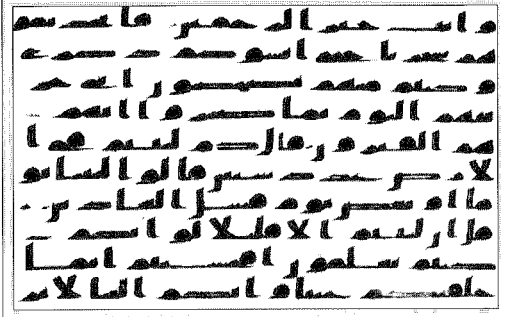 وانت خير الرحمين فاتخذتمو
هم سخريا حتى انسوكم ذكري
وكنتم منهم تضحكون اني جز
يتهم اليوم بما صبروا انهم
هم الفائزون قال كم لبثتم في ا
لارض عدد سنين قالوا لبثنا يو
ما او بعض يوم فسل العادين
قال ان لبثتم الا قليلا لو انكم
كنتم تعلمون افحسبتم انما
خلقنكم عبثا وانكم الينا لا تر